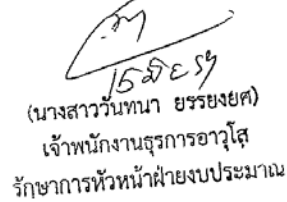 15 มิ.ย. 59
(นางสาววันทนา ยรรยงยศ)
เจ้าพนักงานธุรการอาวุโส
รักษาการหัวหน้าฝ่ายงบประมาณ